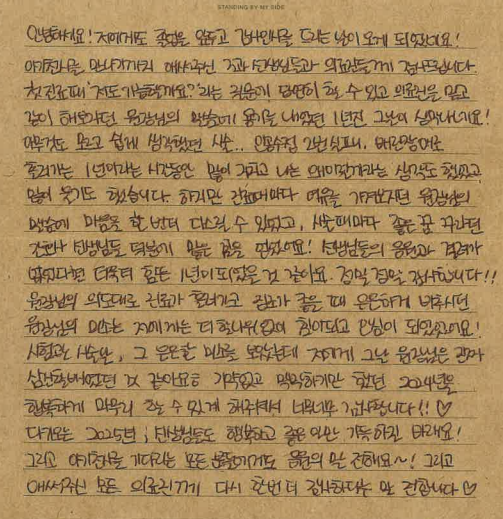 STANDING BY MY SIDE
안녕하세요! 저에게도 졸업을 앞두고 감사인사를 드리는 날이 오게 되었네요!
아기천사를 만나기까지 애써주신 고과 선생님들과 의료진들께 감사드립니다
첫 진료때 '저도 가능할까요?' 라는 질문에 당연히 할 수 있고 의료진을 믿고
같이 해보자던 원장님의 말씀에 용기를 내었던 1년전 그날이 살아나네요!
아무것도 모르고 쉽게 생각했던 시술.. 인공수정 2번 실패,
흘러가는 1년이라는 시간동안 많이 지치고 나는 왜이럴까라는 생각도 했었고
많이 울기도 했습니다. 하지만 진료때마다 여유를 가져보자던 원장님의
말씀에 마음을 한 번 더 다스릴 수 있었고, 시술때마다 좋은 꿈 꾸라던
간호사 선생님들 덕분에 많은 힘을 얻었어요! 선생님들의 응원과 격려가
없었다면 더욱더 힘든 1년이 되었을 것 같아요. 정말 정말 감사합니다!!
원장님의 의도대로 진료가 흘러가고 결과가 좋을 때 은은하게 비춰지던
원장님의 미소는 저에게는 더할나위없이 힘이되고 안심이 되었었어요!
시험관 시술날, 그 은은한 미소를 보았는데 저에게 그날 원장님은 관자
삼신할배였던 것 같아요ㅎ 기약없고 막막하기만 했던 2024년을
행복하게 마무리 할 수 있게 해주셔서 너무너무 감사합니다!! ♡
다가오는 2025년, 선생님들도 행복하고 좋은 일만 가득하길 바래요!
그리고 아기천사를 기다리는 모든 분들에게도 응원의 말 전해요~! 그리고
애써주신 모든 의료진께 다시 한번 더 감사하다는 말 전합니다 ♡